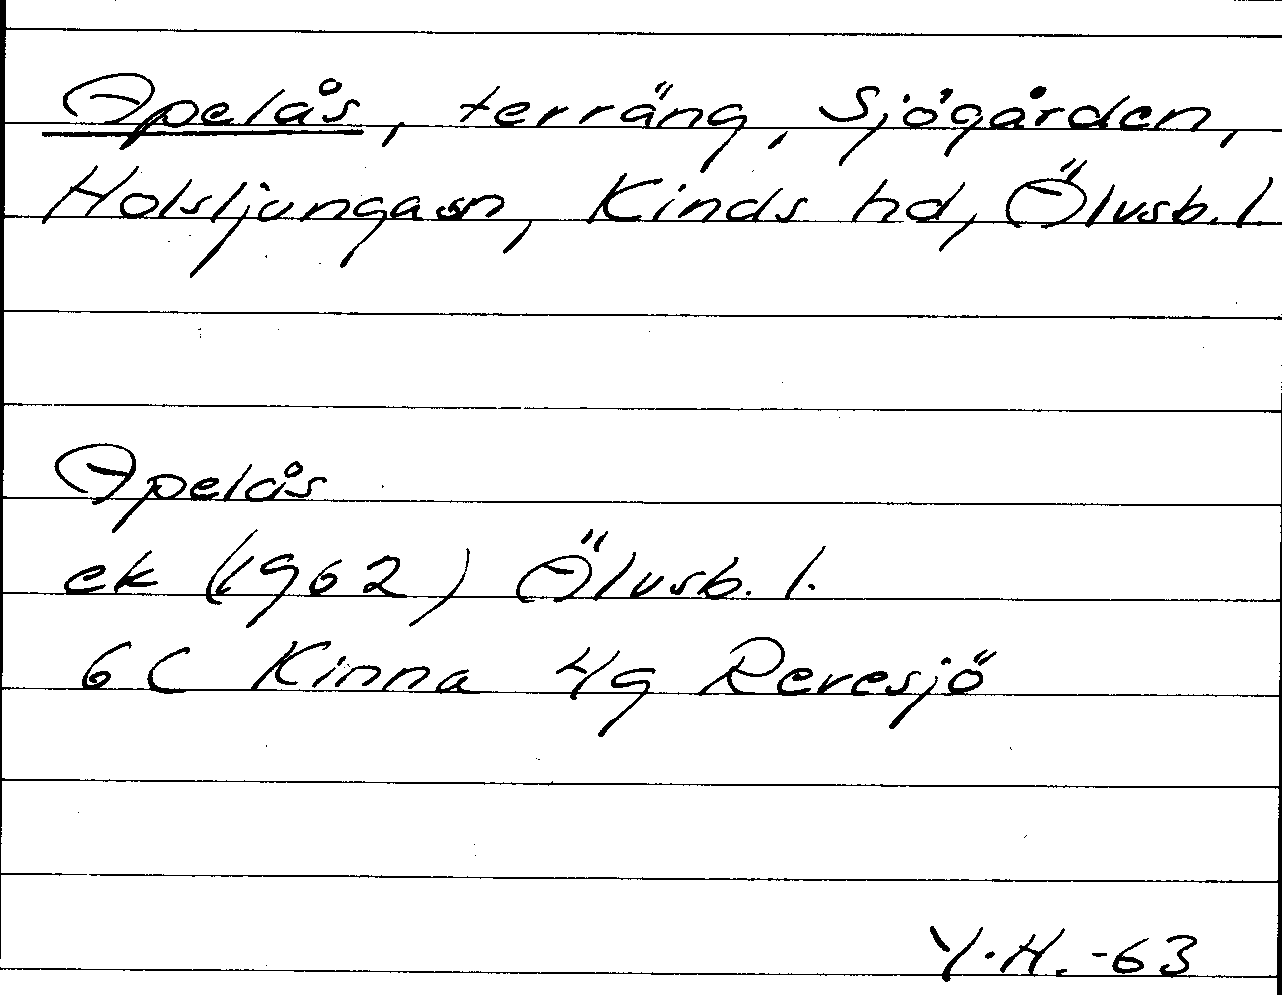 Apelås, terräng, Sjögården,
Holsljunga sn, Kinds hd, Älvsb. l.
Apelås
ek (1962) Älvsb. l.
6C Kinna 4g Reresjö
Y.H. -63